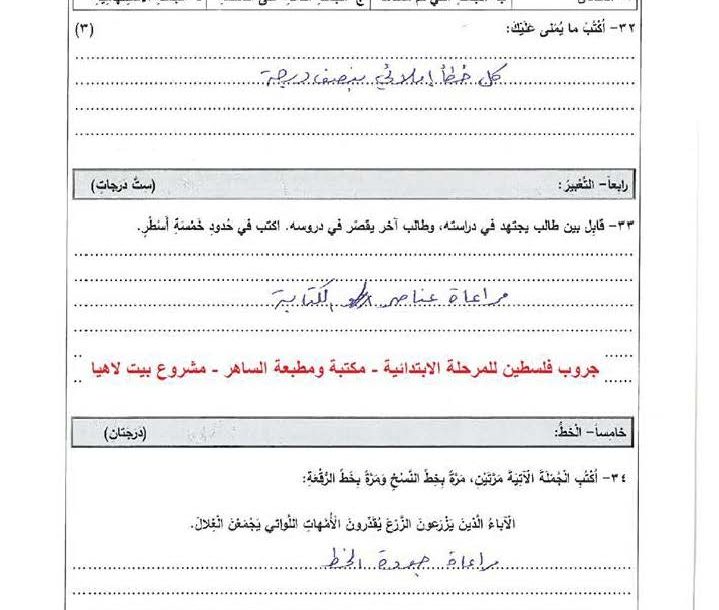 ٣٢- أكْتُبُ ما يُمْلى عَلَيْكَ: (٣)
كل خطأ إملائي بنصف درجة
رابعاً- التَّعْبيرُ: (ستُّ دَرَجاتٍ)
٣٣- قابِل بين طالب يجتهد في دراسته، وطالب آخر يقصّر في دروسه. اكتب في حُدودِ خَمْسَةِ أسْطُرٍ.
مراعاة عناصر الكتابة
جروب فلسطين للمرحلة الابتدائية - مكتبة ومطبعة الساهر - مشروع بيت لاهيا
خامِساً- الْخطُّ: (دَرجَتان)
٣٤- أكْتُبُ الْجُمْلَةَ الْآتِيَةَ مَرَّتَيْنِ، مَرَّةً بِخَطِّ النَّسْخِ وَمَرَّةً بِخَطِّ الرُّقْعَةِ:
الْآباءُ الَّذينَ يَزْرَعونَ الزَّرْعَ يُقَدِّرونَ الْأُمَّهاتِ اللَّواتي يَجْمَعْنَ الْغِلالَ.
مراعاة جودة الخط